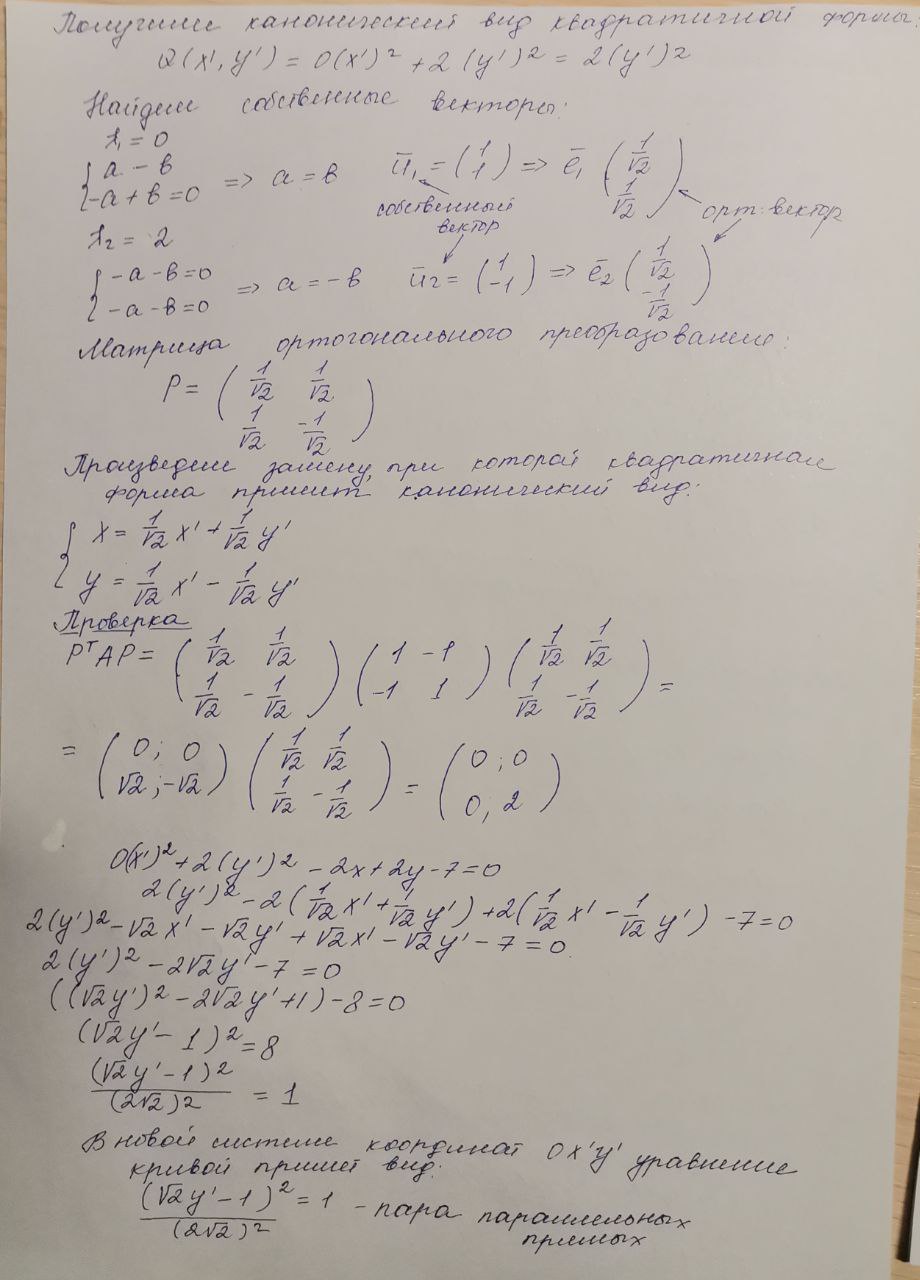 Получили канонический вид квадратичной формы:
Q(x', y') = 0(x')² + 2(y')² = 2(y')²
Найдем собственные векторы:
λ₁ = 0
{ a - b
{ -a + b = 0 => a = b ū₁ = (1 1) => ē₁ (1/√2 1/√2)
собственный вектор
орт. вектор
λ₂ = 2
{ -a - b = 0
{ -a - b = 0 => a = -b ū₂ = (1 -1) => ē₂ (1/√2 -1/√2)
Матрица ортогонального преобразования:
P = (1/√2 1/√2
1/√2 -1/√2)
Произведем замену, при которой квадратичная
форма примет канонический вид:
{ x = 1/√2 x' + 1/√2 y'
{ y = 1/√2 x' - 1/√2 y'
Проверка
PᵀAP = (1/√2 1/√2 (1 -1 (1/√2 1/√2
1/√2 - 1/√2) -1 1) 1/√2 - 1/√2) =
= (0; 0 (1/√2 1/√2 (0; 0
√2; -√2) 1/√2 - 1/√2) = 0; 2)
0(x')² + 2(y')² - 2x + 2y - 7 = 0
2(y')² - 2(1/√2 x' + 1/√2 y') + 2(1/√2 x' - 1/√2 y') - 7 = 0
2(y')² - √2 x' - √2 y' + √2 x' - √2 y' - 7 = 0
2(y')² - 2√2 y' - 7 = 0
((√2 y')² - 2√2 y' + 1) - 8 = 0
(√2 y' - 1)² = 8
(√2 y' - 1)² / (2√2)² = 1
В новой системе координат Ox'y' уравнение
кривой примет вид:
(√2 y' - 1)² / (2√2)² = 1 - пара параллельных
прямых